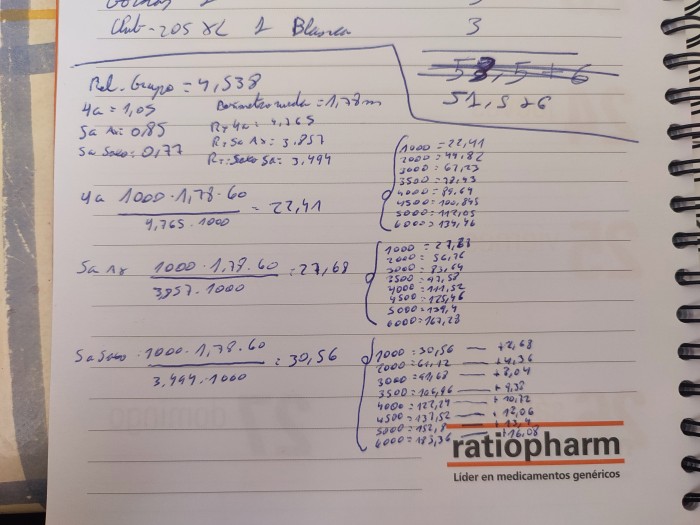 Club-205 XL 1 Blanca 3
53,5 + 6
51,5 + 6
Rel. Grupo = 4,538
4a = 1,05 Perimetro rueda = 1,78 m
5a Ax: 0,85 RT 4a: 4,765
5a Saxo: 0,77 RT 5a Ax: 3,857
RT: Saxo 5a: 3,494
4a 1000 · 1,78 · 60 / 4,765 · 1000 = 22,41
1000 = 22,41
2000 = 44,82
3000 = 67,23
3500 = 78,43
4000 = 89,64
4500 = 100,845
5000 = 112,05
6000 = 134,46
5a Ax 1000 · 1,78 · 60 / 3,857 · 1000 = 27,68
1000 = 27,88
2000 = 55,76
3000 = 83,64
3500 = 97,58
4000 = 111,52
4500 = 125,46
5000 = 139,4
6000 = 167,28
5a Saxo · 1000 · 1,78 · 60 / 3,494 · 1000 = 30,56
1000 = 30,56 — + 2,68
2000 = 61,12 — + 5,36
3000 = 91,68 — + 8,04
3500 = 106,96 — + 9,38
4000 = 122,24 — + 10,72
4500 = 137,52 — + 12,06
5000 = 152,8 — + 13,4
6000 = 183,36 — + 16,08
ratiopharm
Líder en medicamentos genéricos